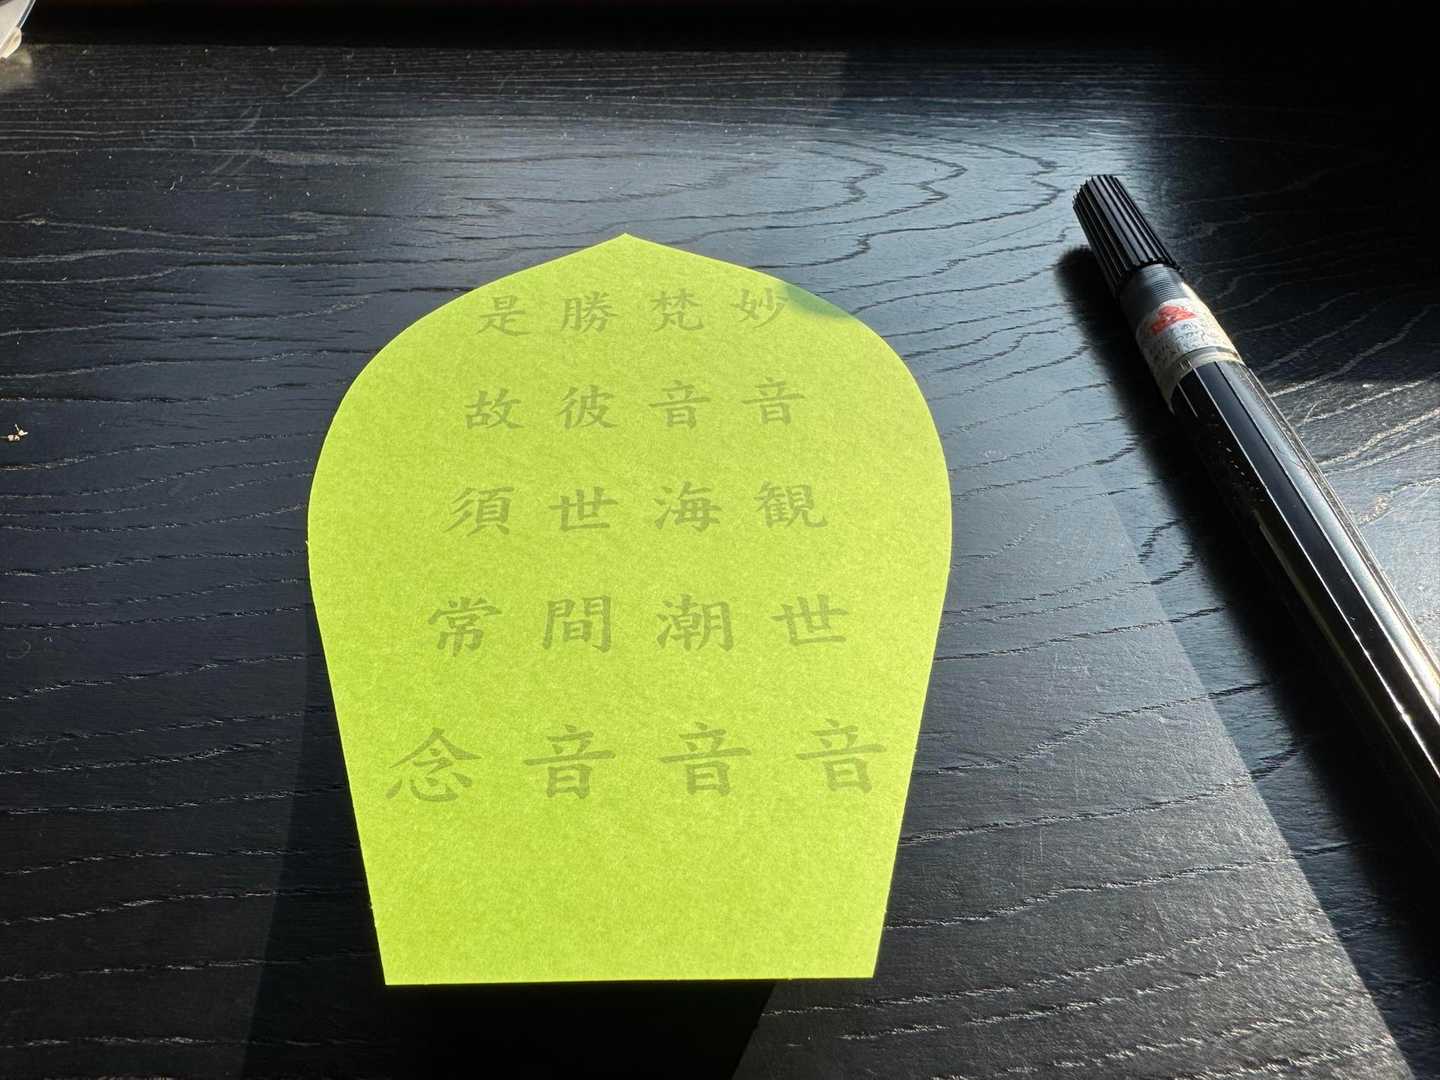 妙音観世音
梵音海潮音
勝彼世間音
是故須常念